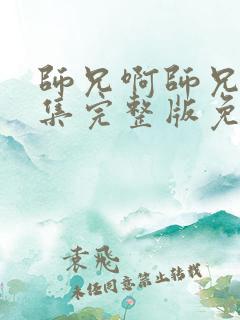 師兄啊師兄
集完整版免
袁飛
未经同意禁止转载